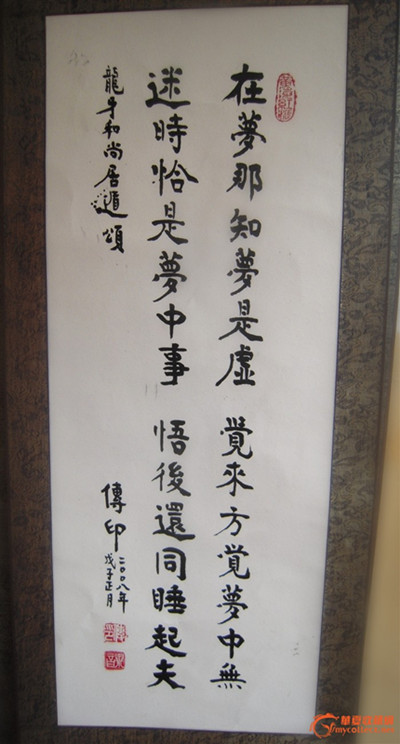 在夢那知夢是虛 覺來方覺夢中無
迷時恰是夢中事 悟後還同睡起夫
龍牙和尚居遁頌
傳印
二〇〇八年
戊子正月
華夏收藏網
mycollect.net